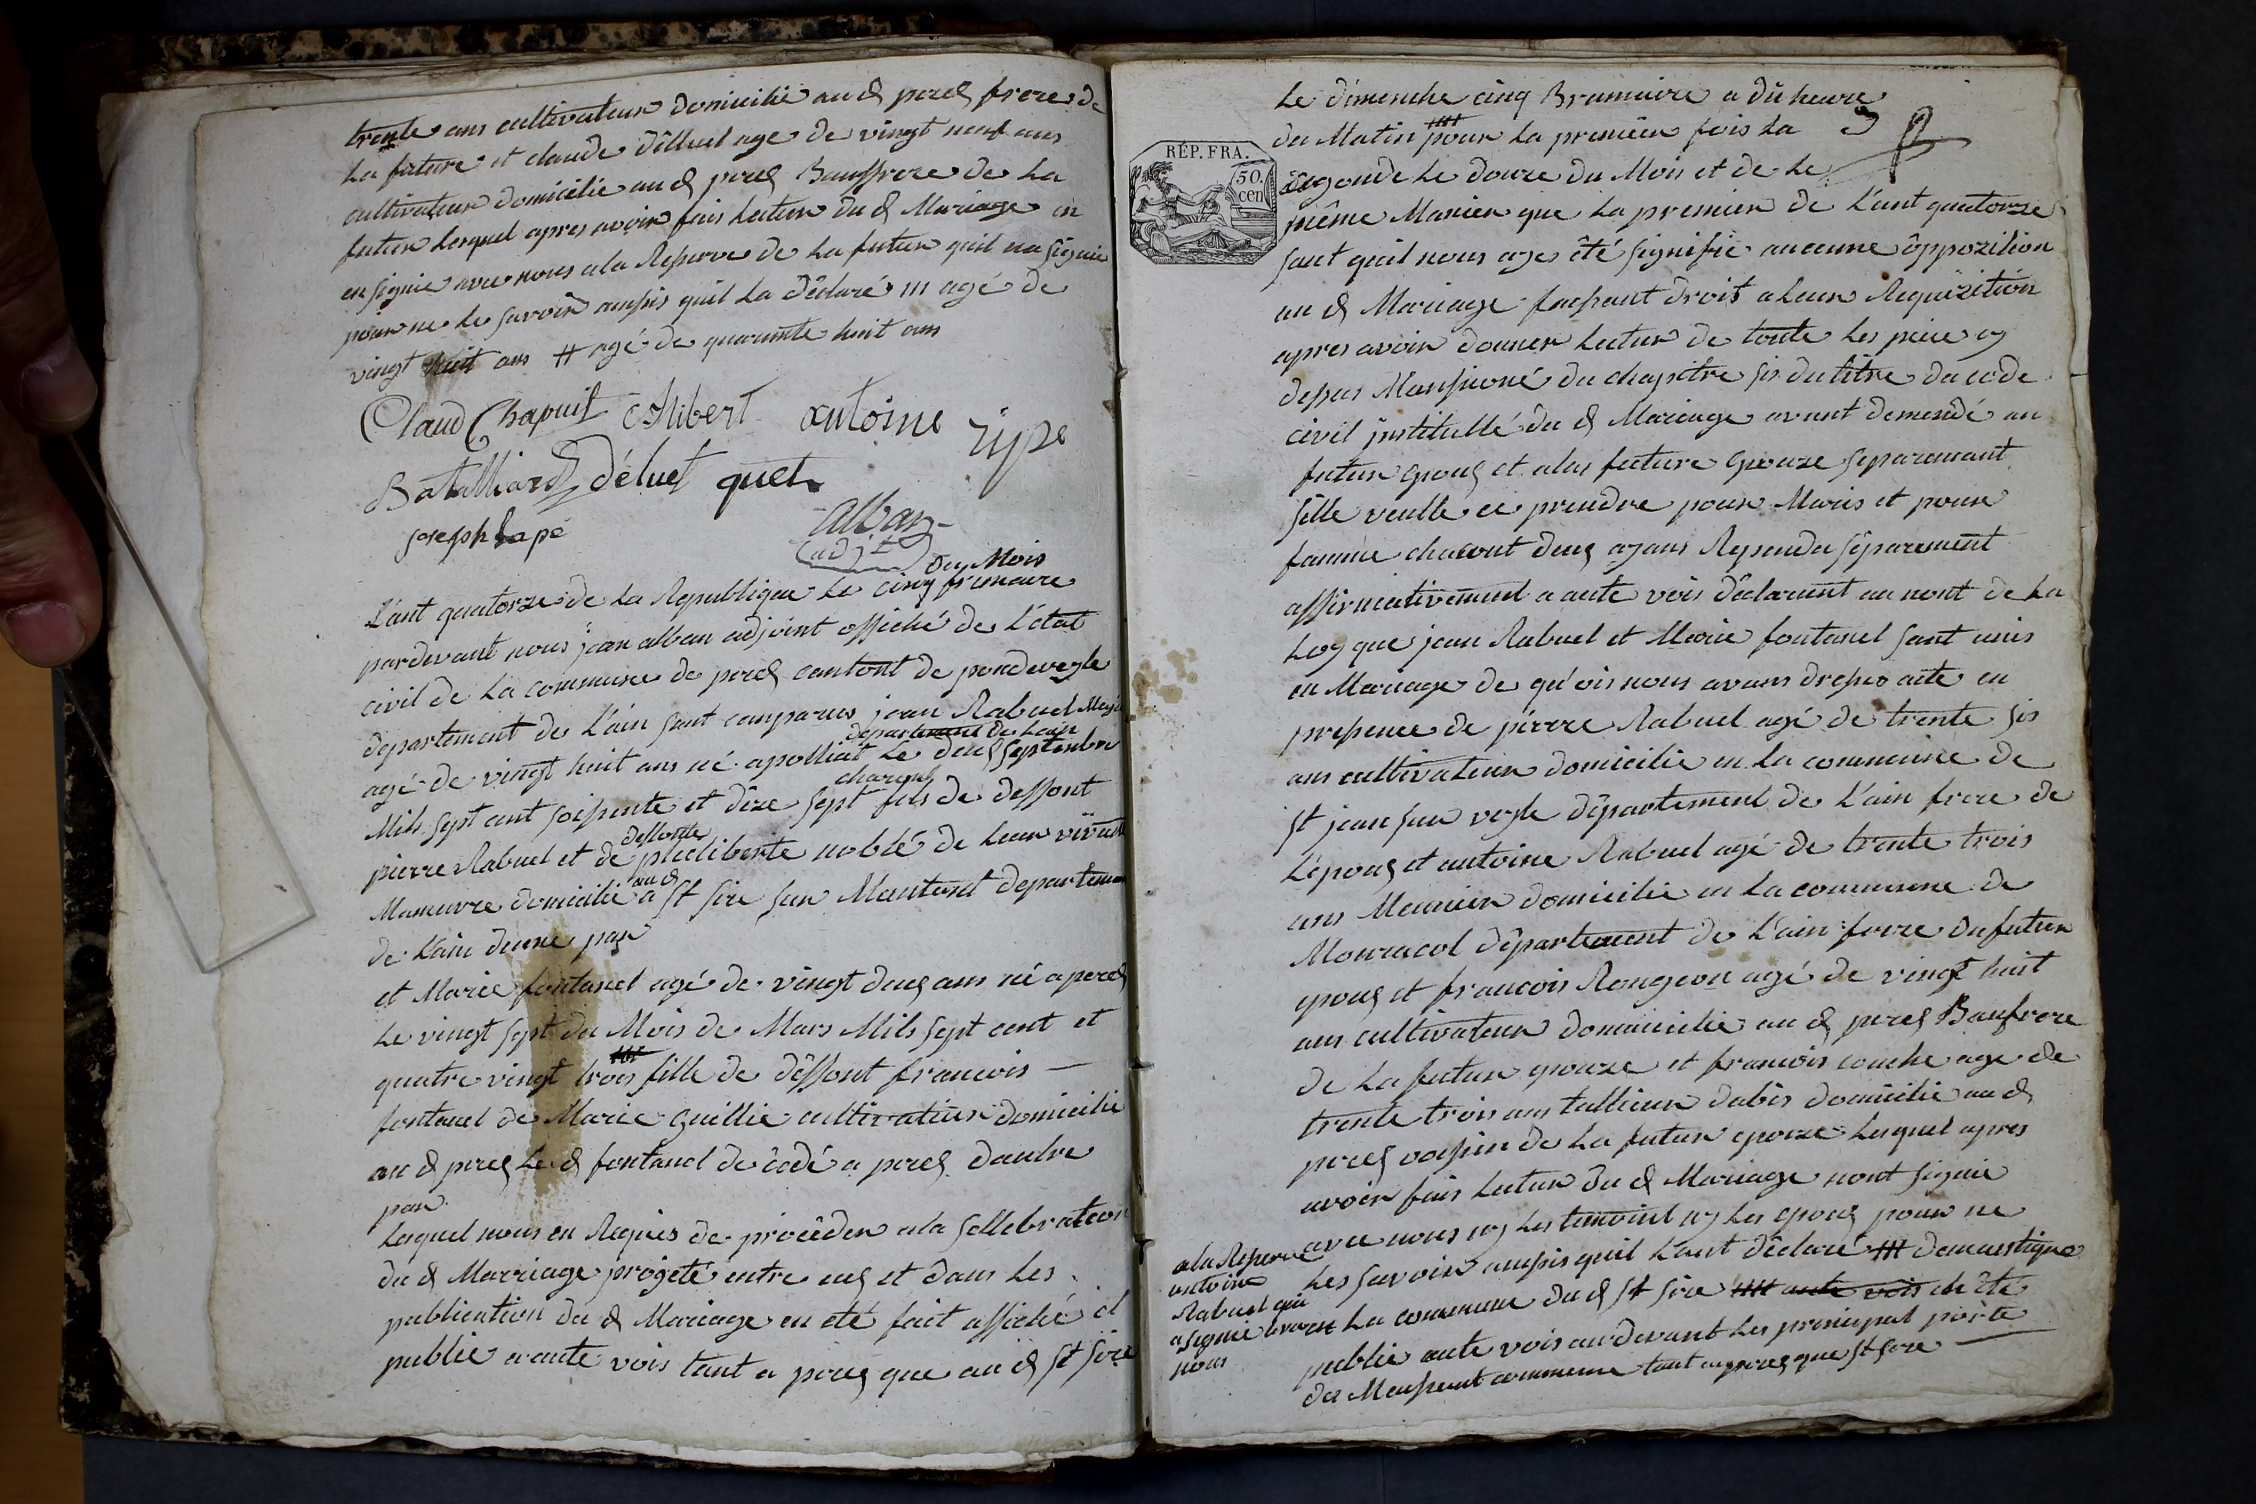 trente ans cultivateur domicilié au d perex frere de
La future et claude délluet age de vingt neuf ans
cultivateur domicilié au d perex Bauffrere de La
futur lesquel apres avoir fais Lecture du d Mariage on
en signie avec nous ala Reserve de La futur quil na signie
pour ne Le savoir ainsis quil La déclaré /// agé de
vingt huit ans # agé de quarante huit ans
Claud Chapuis Antoine
Batalliard déluet quet
alban
adjt
joseph Lapé
du Mois
L'ant quatorze de La Republique Le cinq frimaire
pardevant nous jean alban adjoint officié de L'état
civil de La commune de perex cantont de pondeveyle
département de L'ain sont comparus jean Rabuel
département de Lain
agé de vingt huit ans né apolliat Le deux septembre
Mils sept cent soisente et dixe sept fils de deffont
pierre Rabuel et de noblé de Leur vivant
deffonte
Maneuvre domicilié a St sire sur Mentont departement
au d
de L'ain dune par
et Marie fontanel agé de vingt deux ans né a perex
Le vingt sept du Mois de Mars Mils sept cent et
quatre vingt trois fille de deffont francois
fontanel de Marie Guillie cultivateur domicilié
au d perex Le d fontanel décédé a perex dautre
par
Lesquel nous en Requis de procéder ala sellebration
du d Marriage projeté entre eux et dans Les
publication du d Mariage en été fait affiché et
publié a aute vois tant a perex que au d St sire
Le dimenche cinq Brumaire a dix heure
du Matin pour La premiere fois La
RÉP. FRA.
50.
cen
segonde Le douze du Mois et de Le
même Manier que La premier de L'ant quatorze
sant quil nous aye été signifié aucunne ôppozition
au d Mariage faisant droit a Leur Requizition
apres avoir donner Lecture de toute Les piece cy
desus Mansioné du chapitre sis du titre du code
civil institullé du d Mariage avant demendé au
futur epoux et alas future epouze separemant
sille veulle ce prendre pour Maris et pour
famme chacunt deux ayans Reponda séparement
affirmativement a aute vois déclarant au nont de La
Loy que jean Rabuel et Marie fontanel sont unis
en Mariage de qu'ois nous avans dresse acte en
presence de pierre Rabuel agé de trente sis
ans cultivateur domicilié en la commune de
St jean sur veyle département de L'ain frere de
L'epoux et antoine Rabuel agé de trente trois
ans Meunier domicilié en La commune de
Mouracol département de L'ain frere du futur
epoux et francois Rongeon agé de vingt huit
ans cultivateur domicilié au d perex Baufrere
de La futur epouze et francois couche age de
trente trois ans tallieur dabis domicilié au d
perex voisin de La futur epouze Lesquel apres
avoir fais Lectur du d Mariage nont signie
avec nous ny Les temoint ny Les epoux pour ne
Les savoir ainsis quil L'ont déclaré /// domestique
La commune du d St sire //// aute vois été
publié aute vois audevant Les principal porte
de Maisont commune tant au perex que St sire
ala Reserve
antoine
Rabuel qui
a signie avec
nous